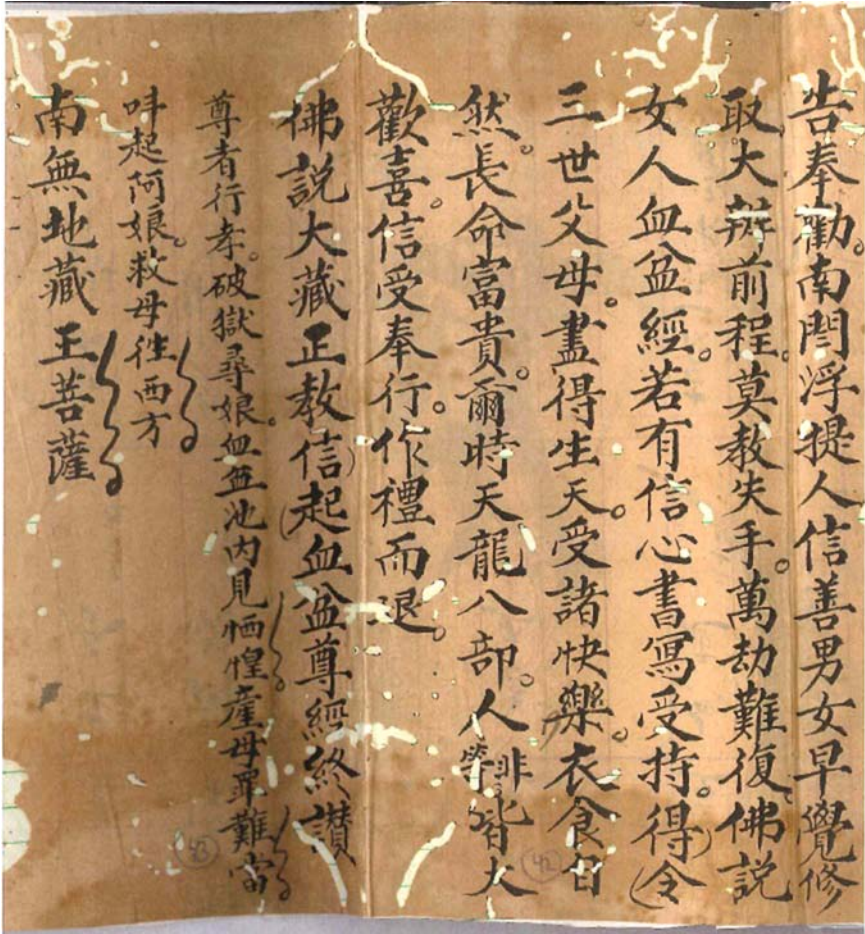 告奉勸。南閆浮提人信善男女早覺修
取大辦前程。莫教失手。萬劫難復。佛説
女人血盆經。若有信心書寫受持。得)(令
三世父母。盡得生天。受諸快樂。衣食自
然。長命富貴。爾時天龍八部。人非等皆大
歡喜。信受奉行。作禮而退。
佛説大藏正教信)(起血盆尊經終讃
尊者行孝。破獄尋娘。血盆池内見恓惶。産母罪難當
呌起阿娘。救母徃西方
南無地藏王菩薩
42
43